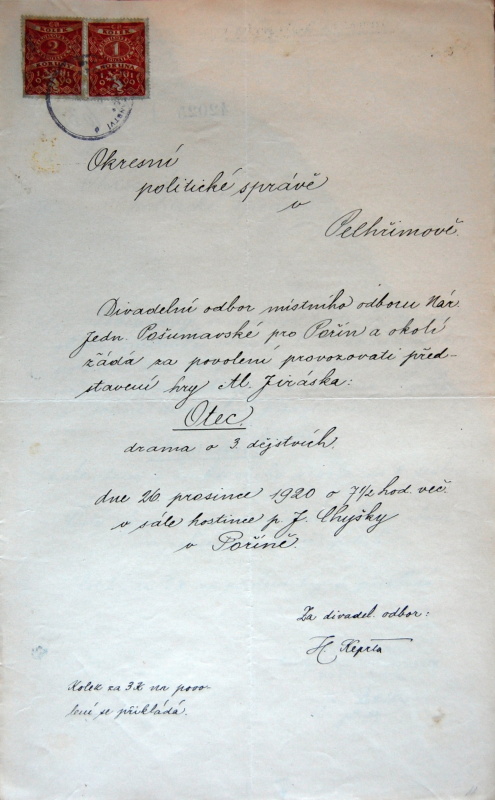 KOLEK
2
KORUNY
KOLEK
1
KORUNA
Okresní
politické správě
v
Pelhřimově.
Divadelní odbor místního odboru Nár.
Jedn. Pošumavské pro Pořín a okolí
žádá za povolení provozovati před-
stavení hry Al. Jiráska:
Otec.
drama o 3. dějstvích.
dne 26. prosince 1920 o 7 1/2 hod. več.
v sále hostince p. J. Chyšky
v Poříně.
Za divadel. odbor:
Kolek za 3 K na povo-
lení se přikládá.